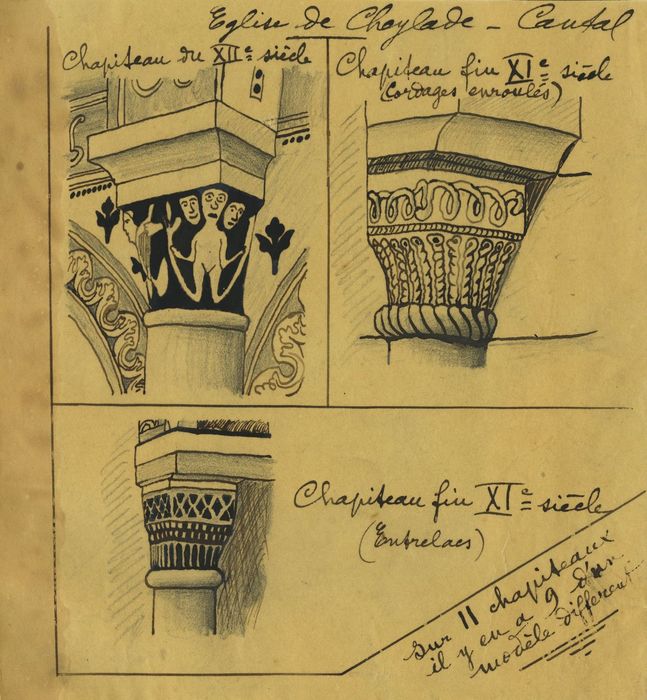 Eglise de Cheylade - Cantal
Chapiteau du XIIe siècle
Chapiteau fin XIe siècle
(Cordages enroulés)
Chapiteau fin XIe siècle
(Entrelacs)
sur 11 chapiteaux
il y en a 9 d'un
modèle différent